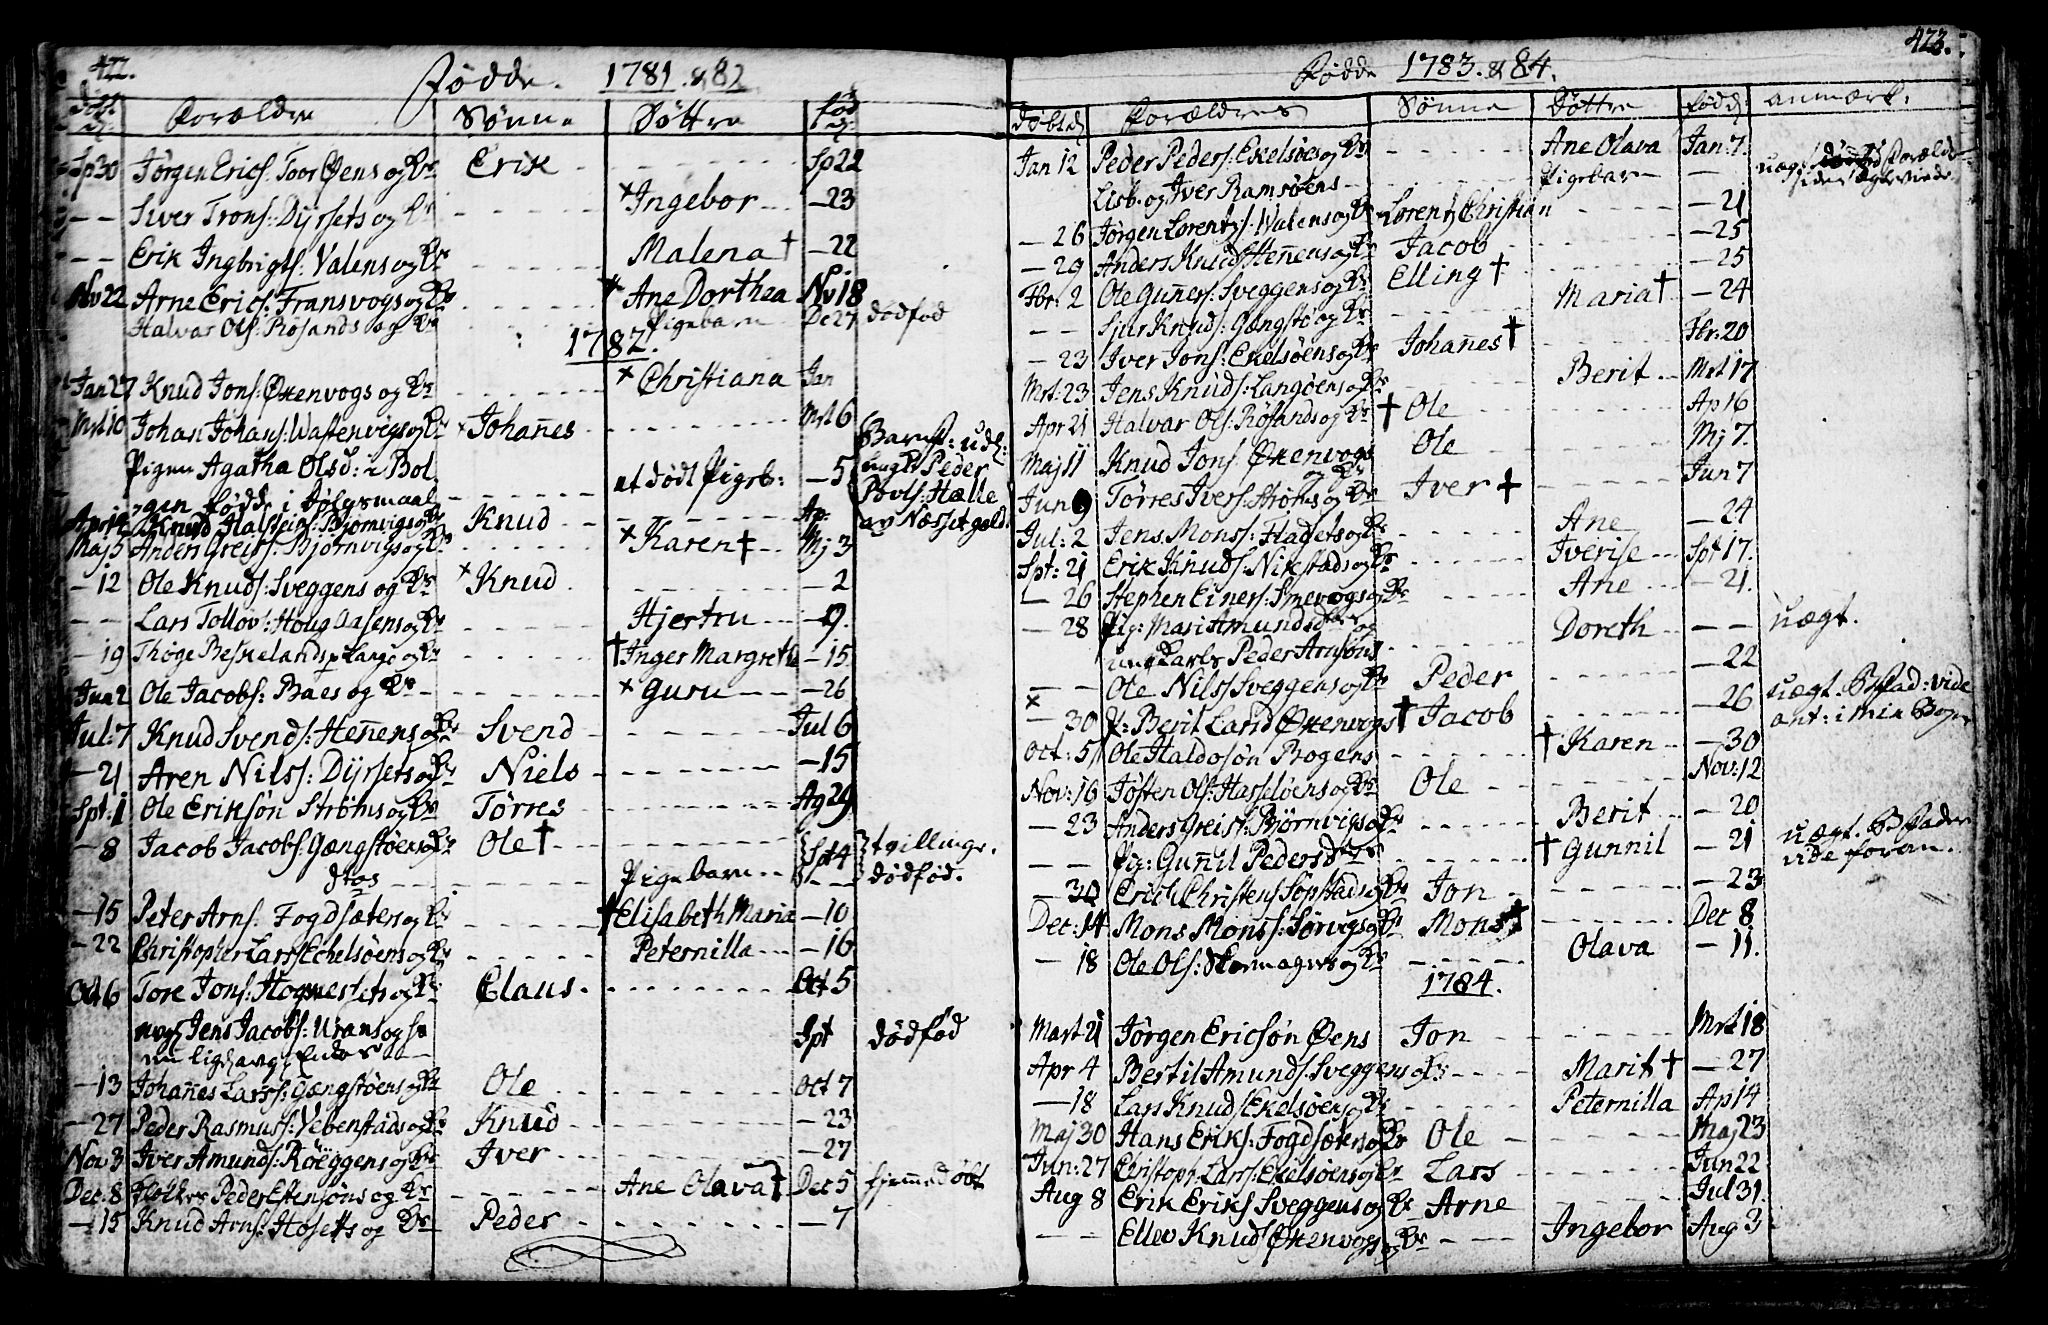 422.
Fødde. 1781. & 82
Døbt Forældre Sønne Døttre fød
Sp 30 Jørgen Erics: Toor Øens og Kr Erik Sp 22
— — Siver Trons: Dyrsets og Kr × Ingebor — 23
— — Erik Ingbrigts: Valens og Kr Malena † — 22
Nv 22 Arne Erics: Fransvogs og Kr Ane Dorthea Nv 18
Halvar Ols: Røsands og Kr Pigebarn De 27 dødfød
1782.
Jan 27 Knud Jons: Øxenvogs og Kr × Christiana Jan
Mrt 10 Johan Johans: Wastenvigs og Kr × Johañes Mrt 6
Pigen Agatha Olsd: Bol
gen fødde i Dølgsmaal et dødt Pigeb: — 5
Barnef: udl:
ungk Peder
Povls: Hælle
av Næsset geld
Apr 14 Knud Halsteins: Bjørnvigs og Kr Knud Ap:
Maj 5 Anders Greis: Bjørnvigs og Kr × Karen † Mj 3
— 12 Ole Knuds: Sveggens og Kr × Knud — 2
— — Lars Tollov: Houg Aasens og Kr Hjertru — 9.
— 19 Thøge Beskelands p Langø og Kr † Inger Margrete — 15
Jun 2 Ole Jacobs: Baes og Kr × Guru — 26
Jul: 7 Knud Svends: Heñens og Kr Svend Jul 6
— 21 Aren Nilss: Dyrsets og Kr Niels — 15
Spt: 1 Ole Eriksøn Strøms og Kr Tørres Ag 29
— 8 Jacob Jacobs: Gængstøens og Kr Ole † Spt 4 tvillinge.
dtos Pigebarn — — dødfød.
— 15 Peter Arns: Fogdsæters og Kr † Elisabeth Maria — 10
— 22 Christopher Larss Eckelsøens og Kr Peternilla — 16
Oct 6 Tore Jons: Hogmesters og Kr Claus. Oct 5
Jens Jacobs: Urans og Spt dødfød
— 13 Johañes Larss: Gængstøens og Kr Ole Oct 7
— 27 Peder Rasmuss: Vebenstads og Kr Knud — 23
Nov 3 Iver Amunds: Røeggens og Kr Iver — 27
Dec: 8 Peder Estensøns og Kr Ane Olava † Dec 5 hjemmedøbt
— 15 Knud Arns: Hosetts og Kr Peder — 7
423.
Fødde 1783. & 84.
Døbte Forældres Sønne Døttre født anmærk:
Jan 12 Peder Peders: Ekelsøes og Kr Ane Olava Jan 7.
Lisb. og Iver Ramsøens Pigebarn — uægt Forældr
— 26 Jørgen Lorentzs: Walens og Kr Lorentz Christian — 21
— 29 Anders Knuds Heñens og Kr Jacob — 25
Fbr: 2 Ole Guñers: Sveggens og Kr Elling † — 25
— — Sjur Knuds: Gængstø og Kr Maria † — 24
— 23 Iver Jons: Ekelsøens og Kr Johañes † Fbr: 20
Mrt: 23 Jens Knuds: Langøens og Kr Berit Mrt 17
Apr 21 Halvar Ols: Røsands og Kr † Ole Ap 16
Maj 11 Knud Jons Øxenvogs og Kr Ole Mj 7.
Jun 9 Tørres Ivers: Strøms og Kr Iver † Jun 7
Jul: 2 Jens Monss: Fladsets og Kr Ane — 24
Spt: 21 Erik Knuds: Nikstads og Kr Iverise Spt 17.
— 26 Stephen Einers: Smevogs og Kr Ane — 21.
— 28 Pig: Mari Amundsd og
ungkarls Peder Arnsøns Doreth — — uægt.
— — Ole Nilss Sveggens og Kr Peder — 22
×
— 30 P: Berit Larsd Øxenvogs † Jacob — 26 uægt. Bfad: vide
ant: i min Bog
Oct: 5 Ole Haldosøn Bogens † Karen — 30
Nov: 16 Jøsten Ols: Hasseløens og Kr Ole Nov: 12
— 23 Anders Greis: Bjørnvigs og Kr Berit — 20
— — Pig: Guñil Pedersd † Gunnil — 21 uægt. B Fader
vide foran.
— 30 Erich Christens Sopstads og Kr Jon — 23
Dec: 14 Mons Monss: Sørvigs og Kr Mons † Dec 8
— 18 Ole Ols: Skomagers og Kr Olava — 11.
1784.
Mart 21 Jørgen Ericsøn Øens Jon Mrt 18
Apr 4 Bertil Amunds: Sveggens og Kr Marit † — 27
— 18 Lars Knuds Ekelsøens og Kr Peternilla Ap 14
Maj 30 Hans Eriks: Fogdsæters og Kr Ole Maj 23
Jun: 27 Christoph: Larss: Ekelsøens og Kr Lars Jun 22
Aug 8 Erik Eriks Sveggens og Kr Arne Jul 31.
— — Ellev Knuds Øxenvogs og Kr Ingebor Aug 3